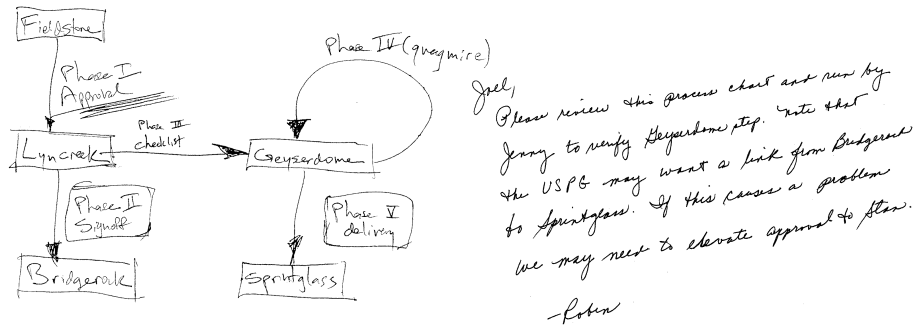 Fieldstone
Phase I
Approval
Lyncreek
Phase III
checklist
Geyserdome
Phase IV (quagmire)
Phase II
Signoff
Phase V
delivery
Bridgerock
Sprintglass
Joel,
Please review this process chart and run by
Jenny to verify Geyserdome step. Note that
the USPG may want a link from Bridgerock
to Sprintglass. If this causes a problem
we may need to elevate approval to Stan.
-Robin